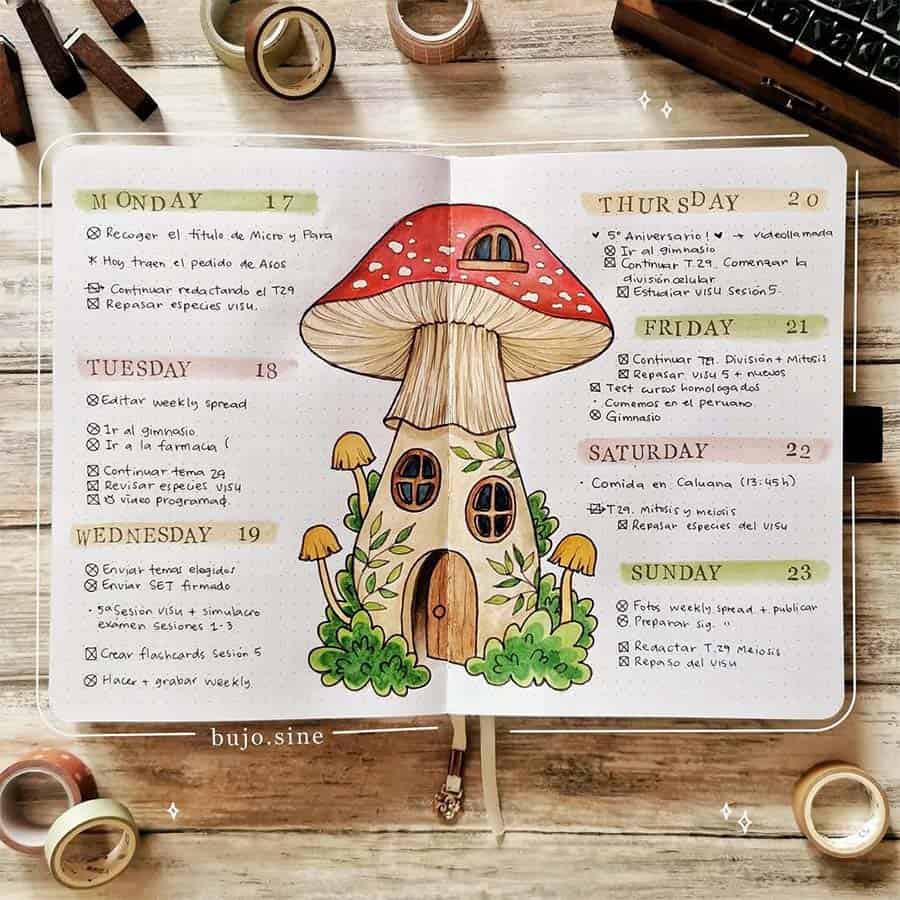 MONDAY 17
Recoger el título de Micro y Para
* Hoy traen el pedido de Asos
Continuar redactando el T29
Repasar especies visu.
TUESDAY 18
Editar weekly spread
Ir al gimnasio
Ir a la farmacia
Continuar tema 29
Revisar especies visu
video programad.
WEDNESDAY 19
Enviar temas elegidos
Enviar SET firmado
· 5ª Sesión visu + simulacro
examen sesiones 1-3
Crear flashcards sesión 5
Hacer + grabar weekly.
THURSDAY 20
♥ 5º Aniversario! ♥ → videollamada
Ir al gimnasio
Continuar T.29. Comenzar la
división celular
Estudiar visu sesión 5.
FRIDAY 21
Continuar División + Mitosis
Repasar visu 5 + nuevos
Test cursos homologados
· Cumemos en el peruano.
Gimnasio
SATURDAY 22
· Comida en Caluana (13:45h)
T29. Mitosis y meiosis
Repasar especies del visu
SUNDAY 23
Fotos weekly spread + publicar
Preparar sig. "
Redactar T.29 Meiosis
Repaso del visu
bujo.sine